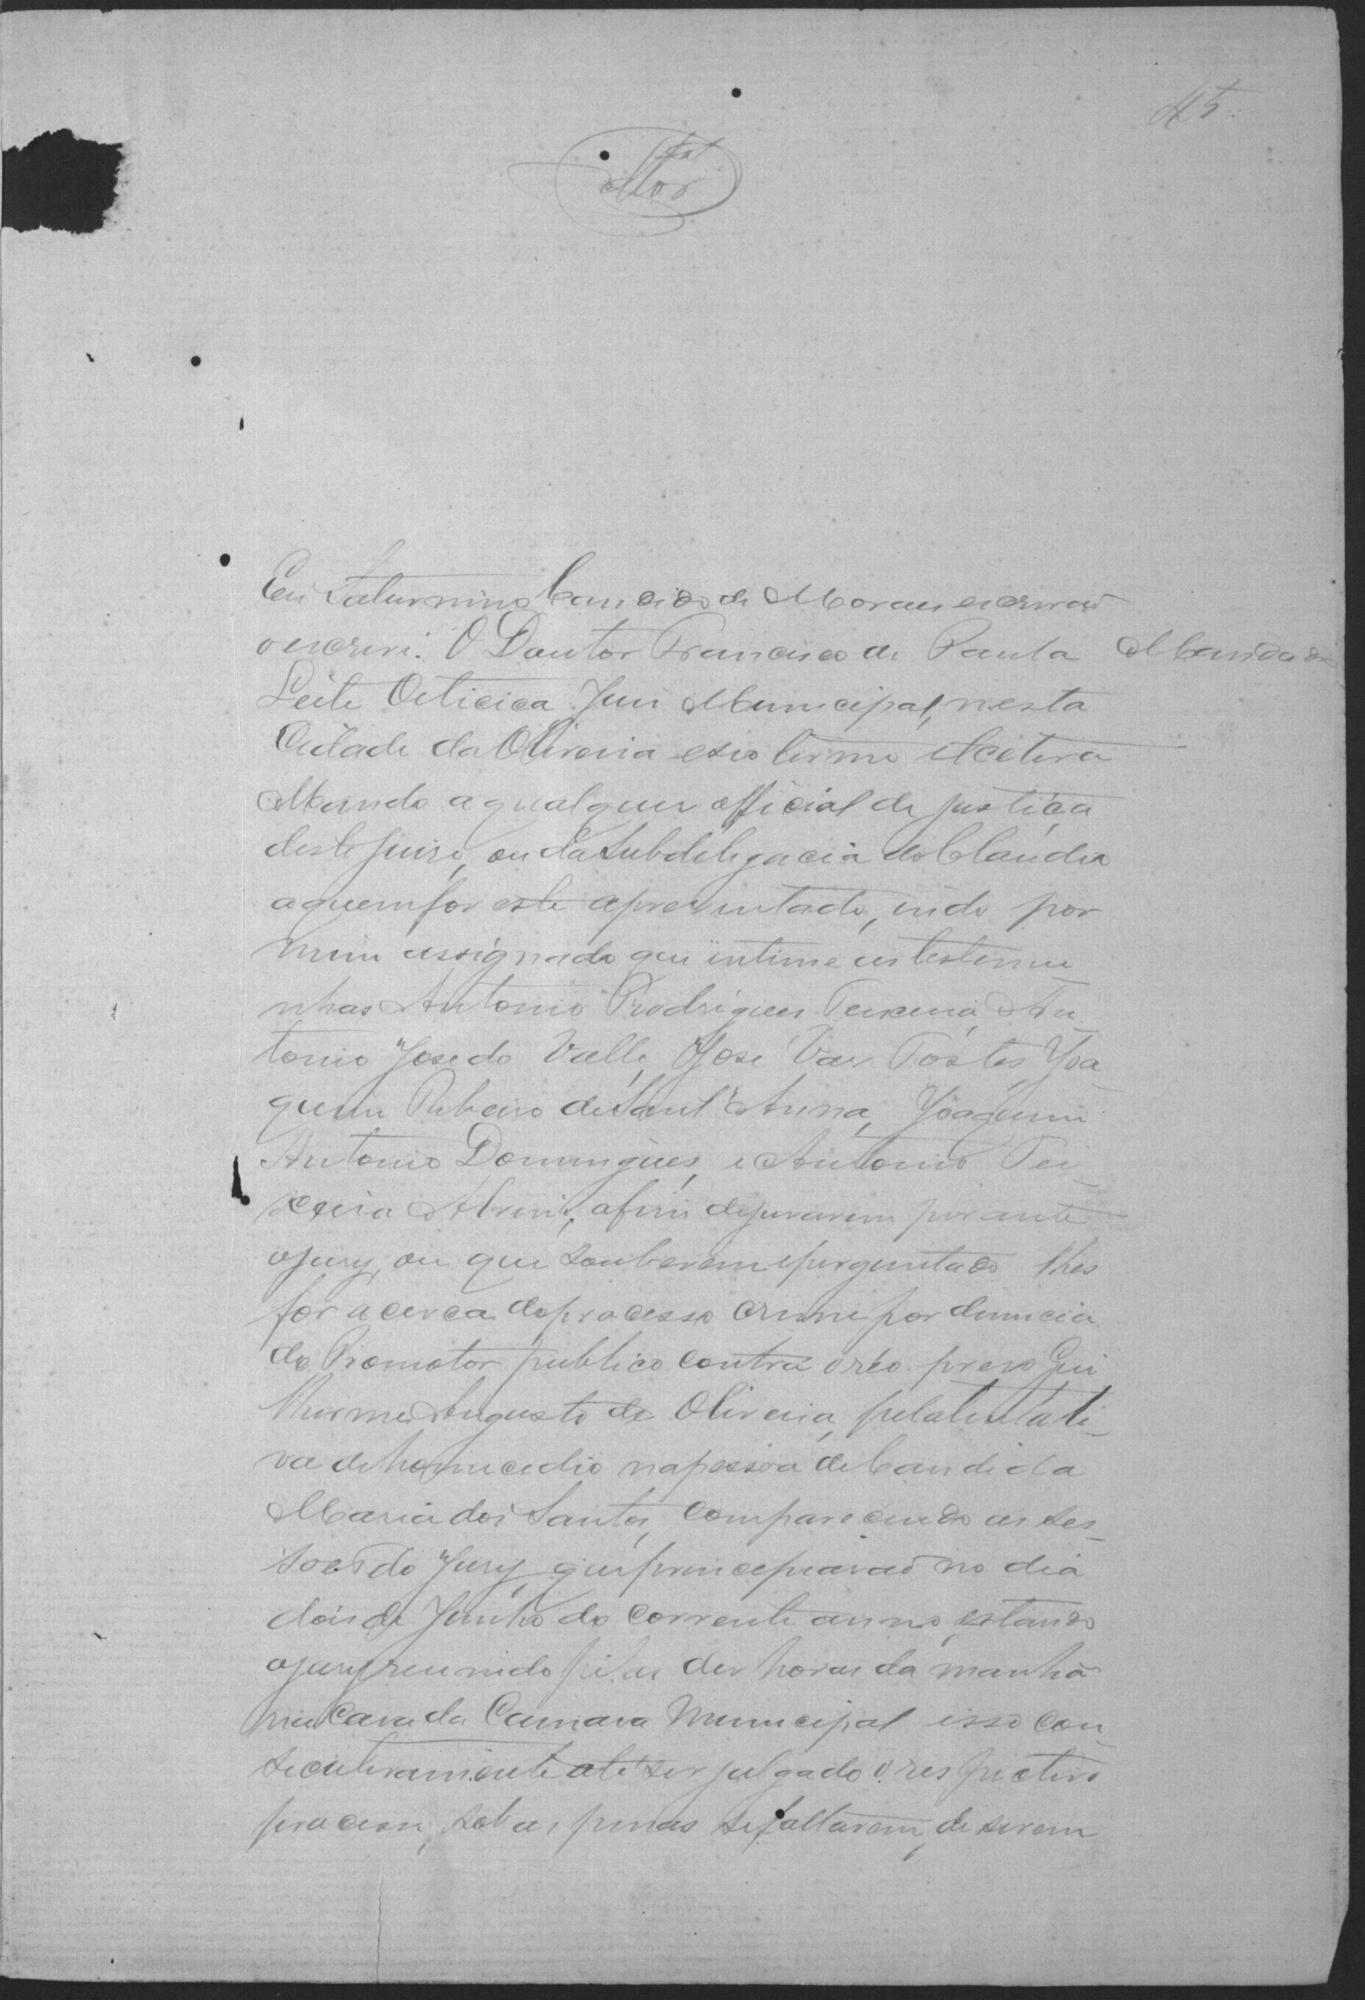 45.
Eu Saturnino Candido de Moraes escrivaõ
o escrevi. O Doutor Francisco de Paula
Mandado
Leite Oiticica Juis Municipal, nesta
Cidade da Oliveira e seo termo etcetera
Mando a qualquer official de justiça
deste Juiso, ou da Subdelegacia do Claudio
a quem for este apresentado, indo por
mim assignado que intime as testemu
nhas Antonio Rodrigues Teixeira, An
tonio José do Valle, José Vas Tostes, Joa_
quim Ribeiro de Sant'Anna, Joaquim
Antonio Domingues, e Antonio Tei_
xeira Abreu, afim de jurarem perante
o jury, ou que souberem e perguntado lhes
for acerca do processo crime por denuncia
do Promotor publico contra o réo preso Gui
lherme Augusto de Oliveira, pela tentati_
va de homicedio na pessoa de Candida
Maria dos Santos, comparecendo as ses_
soes do Jury, que principiaraõ no dia
dois de Junho do corrente anno, estando
o jury reunido pelas des horas da manhã
na Casa da Camara Municipal isso con_
secutivamente até ser julgado o respectivo
processo, sob as penas se faltarem, de serem